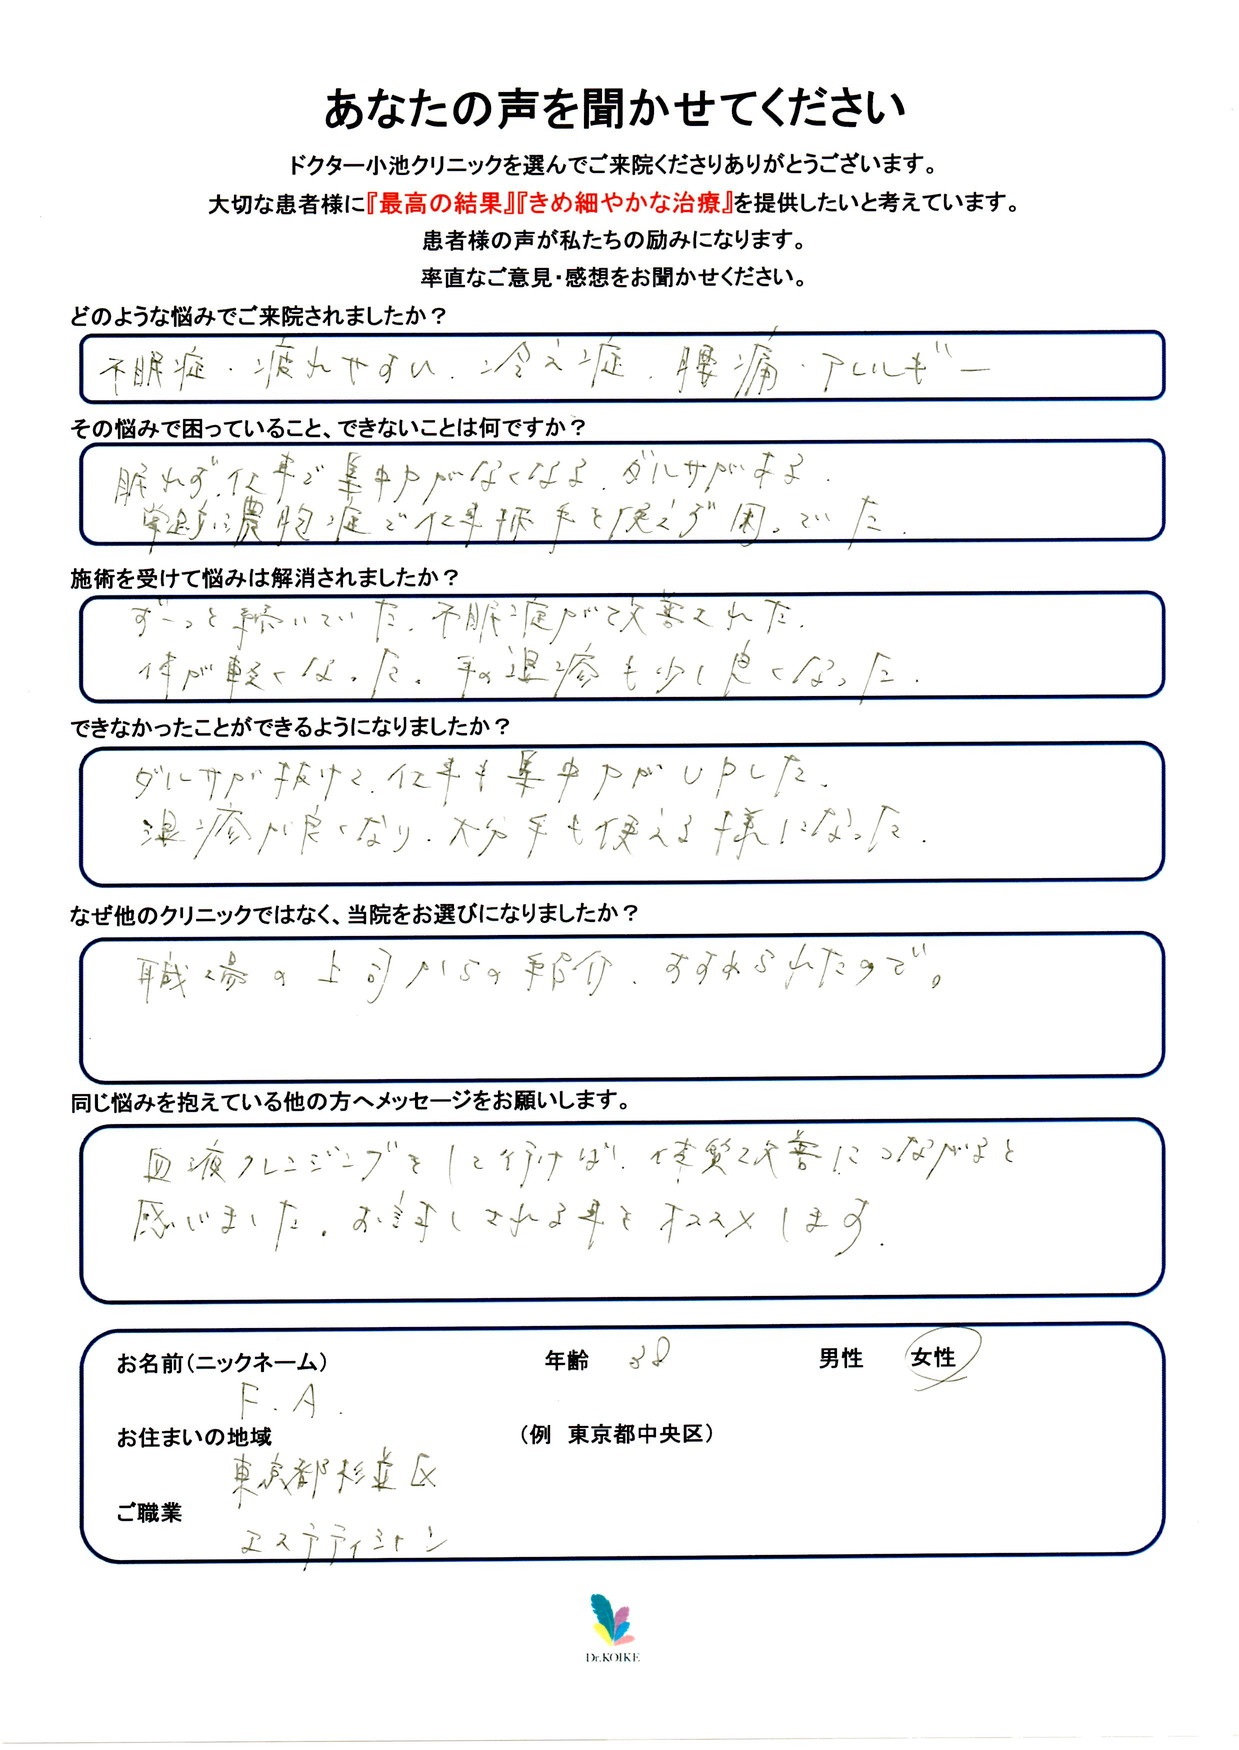 あなたの声を聞かせてください
ドクター小池クリニックを選んでご来院くださりありがとうございます。
大切な患者様に『最高の結果』『きめ細やかな治療』を提供したいと考えています。
患者様の声が私たちの励みになります。
率直なご意見・感想をお聞かせください。
どのような悩みでご来院されましたか？
不眠症・疲れやすい、冷え症、腰痛・アレルギー
その悩みで困っていること、できないことは何ですか？
眠れず、仕事で集中力がなくなる、ダルサがある。
掌蹠膿胞症で仕事柄手を使えず困っていた。
施術を受けて悩みは解消されましたか？
ずーっと続いていた、不眠症が改善された。
体が軽くなった。手の湿疹も少し良くなった。
できなかったことができるようになりましたか？
ダルサが抜けて、仕事も集中力がUPした。
湿疹が良くなり、大分手も使える様になった。
なぜ他のクリニックではなく、当院をお選びになりましたか？
職場の上司からの紹介、すすめられたので。
同じ悩みを抱えている他の方へメッセージをお願いします。
血液クレンジングをして行けば、体質改善につながると
感じました。お試しされる事をオススメします。
お名前（ニックネーム） 年齢 38 男性 女性
F.A.
お住まいの地域 （例 東京都中央区）
東京都杉並区
ご職業
エステティシャン
Dr.KOIKE